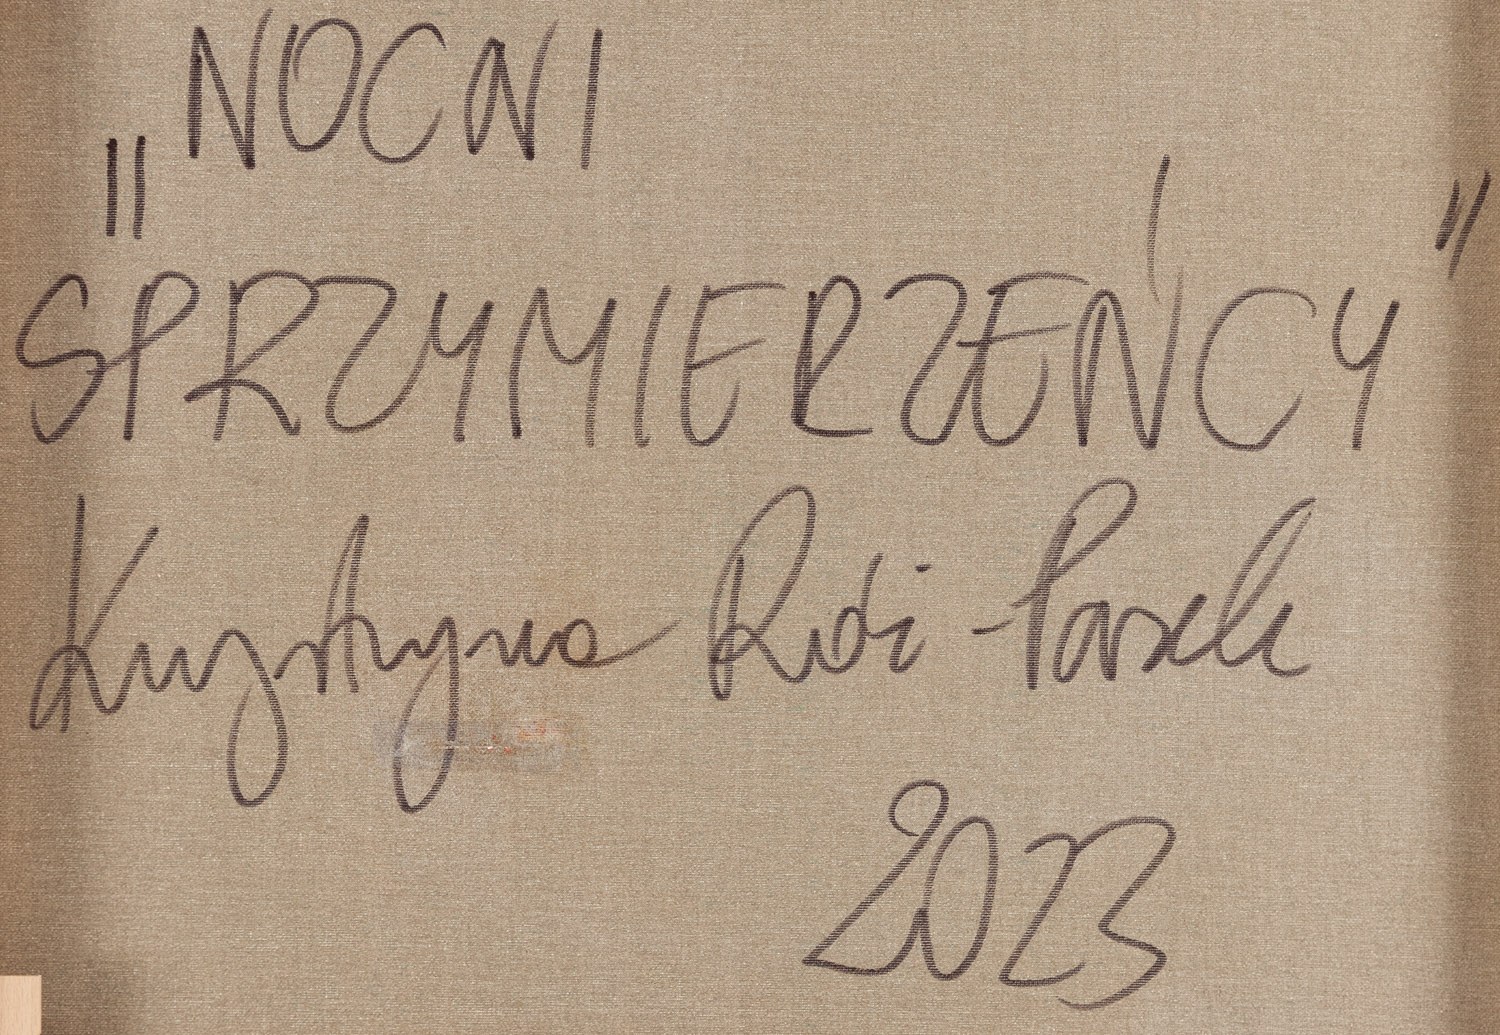 „NOCNI
SPRZYMIERZEŃCY”
Krystyna Rudź-Pasek
2023